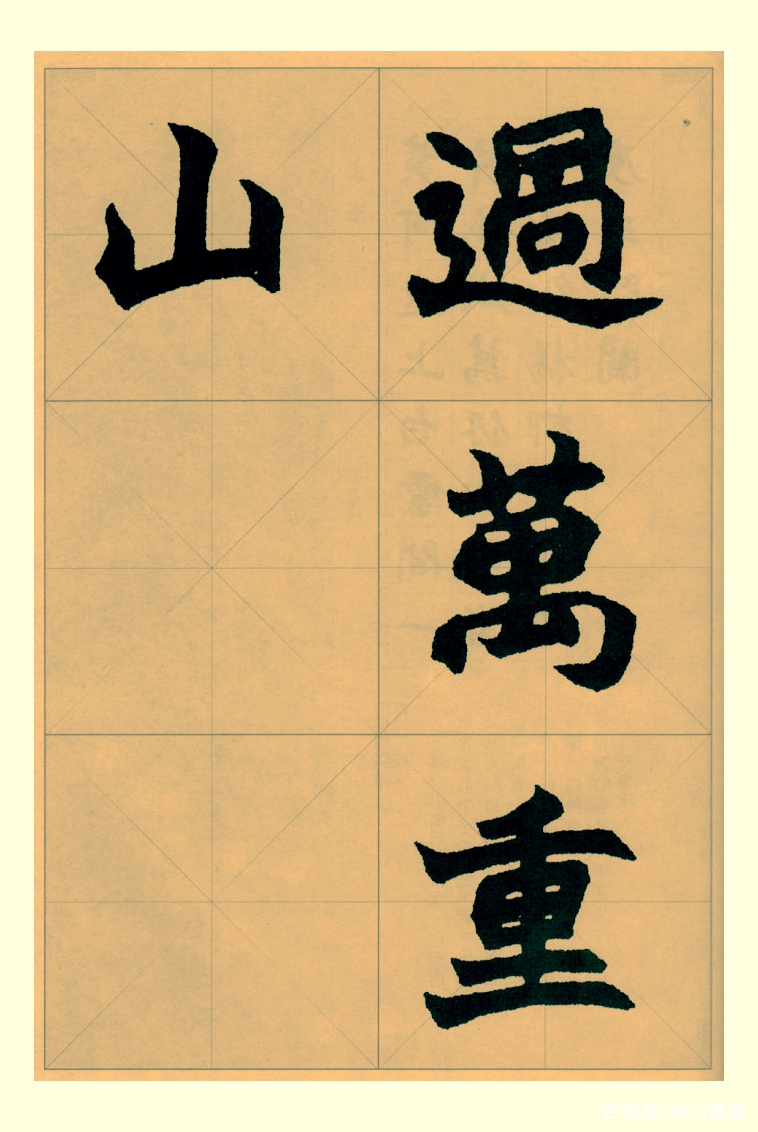 過萬重
山